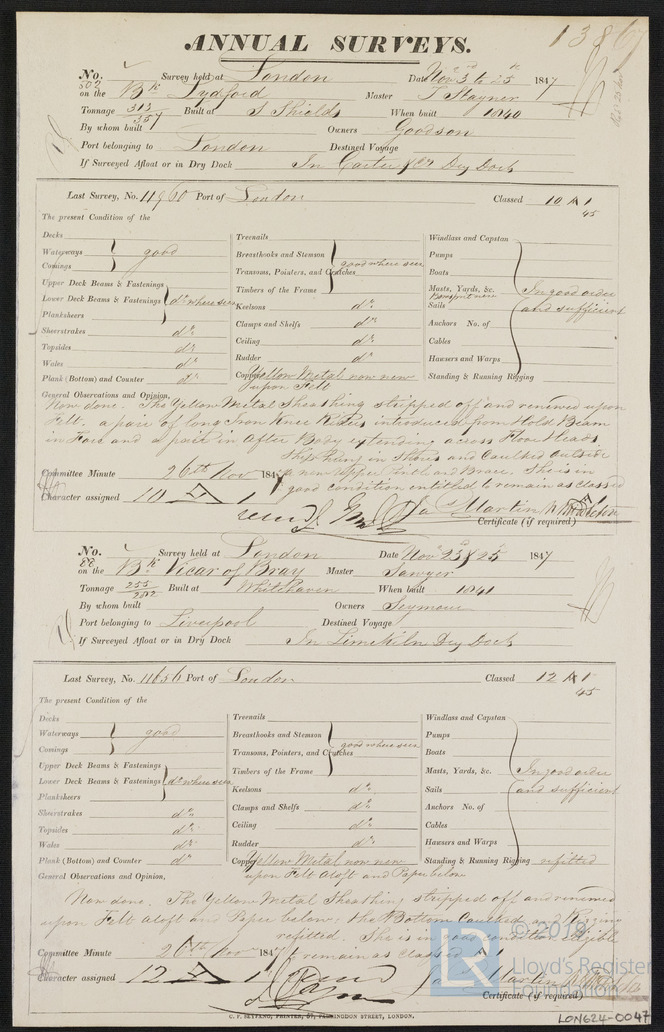 13867
ANNUAL SURVEYS.
No. 502 Survey held at London Date Nov 3rd to 25th 1847
on the Bk Lydford Master T Stayner
Tonnage 313 357 Built at S Shields When built 1840
By whom built Owners Goodson
Port belonging to London Destined Voyage
If Surveyed Afloat or in Dry Dock In Carter & Cos Dry Dock
Last Survey, No. 11960 Port of London Classed 10 A 1
45
The present Condition of the
Decks
Waterways good
Comings
Upper Deck Beams & Fastenings
Lower Deck Beams & Fastenings do where seen
Planksheers
Sheerstrakes do
Topsides do
Wales do
Plank (Bottom) and Counter do
Treenails
Breasthooks and Stemson good where seen
Transoms, Pointers, and Crutches
Timbers of the Frame
Keelsons do
Clamps and Shelfs do
Ceiling do
Rudder do
Copper Yellow Metal now new
upon Felt
Windlass and Capstan
Pumps
Boats
Masts, Yards, &c. In good order
Sails and sufficient
Anchors No. of
Cables
Hawsers and Warps
Standing & Running Rigging
General Observations and Opinion,
Now done. The Yellow Metal Sheathing stripped off and renewed upon
Felt. a pair of long Iron Knee Riders introduced from Hold Beam
in Fore and a pair in After Body extending across Floor Heads
Ship hung in Shores and Caulked outside
a new upper and Brace. She is in
good condition entitled to remain as classed
Committee Minute 26th Nov 1847
Character assigned 10 A 1
Martin
Certificate (if required)
No. 88 Survey held at London Date Nov 23 & 25 1847
on the Bk Vicar of Bray Master Sawyer
Tonnage 255 282 Built at Whitehaven When built 1841
By whom built Owners Seymour
Port belonging to Liverpool Destined Voyage
If Surveyed Afloat or in Dry Dock In Limekiln Dry Dock
Last Survey, No. 11656 Port of London Classed 12 A 1
45
The present Condition of the
Decks
Waterways good
Comings
Upper Deck Beams & Fastenings
Lower Deck Beams & Fastenings do where seen
Planksheers
Sheerstrakes do
Topsides do
Wales do
Plank (Bottom) and Counter do
Treenails
Breasthooks and Stemson good where seen
Transoms, Pointers, and Crutches
Timbers of the Frame
Keelsons do
Clamps and Shelfs do
Ceiling do
Rudder do
Copper Yellow Metal now new
upon Felt aloft and Paper below
Windlass and Capstan
Pumps
Boats
Masts, Yards, &c. In good order
Sails and sufficient
Anchors No. of
Cables
Hawsers and Warps
Standing & Running Rigging refitted
General Observations and Opinion,
Now done. The Yellow Metal Sheathing stripped off and renewed
upon Felt aloft and Paper below, the Bottom Caulked and Rigging
refitted. She is in good condition eligible
to remain as classed A 1
Committee Minute 26th Nov 1847
Character assigned 12 A 1
Martin
Certificate (if required)
C. F. SEYFANG, PRINTER, 57, FARRINGDON STREET, LONDON.
© 2019
LR
Lloyd's Register
Foundation
LON624-0047